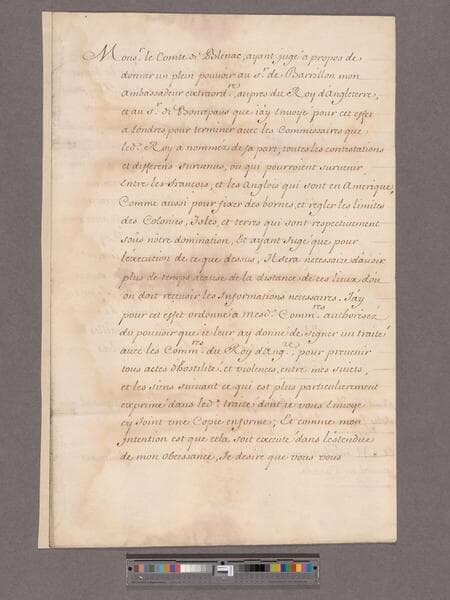 Mons.r le Comte de Blenac, ayant jugé a propos de
donner un plein pouvoir au s.r de Barrillon mon
Ambassadeur extraord.re aupres du Roy d'Angleterre,
et au s.r de Bonrepaus que j'ay Envoyé pour cet effet
a Londres, pour terminer avec les Commissaires que
led. Roy a nommez de sa part, toutes les contestations
et differens survenus, ou qui pourroient survenir
Entre les françois, et les Anglois qui sont en Amerique,
Comme aussi pour fixer des bornes, et regler les limites
des Colonies, Isles, et terres qui sont respectivement
sous nôtre domination, Et ayant Jugé que pour
l'execution de ce que dessus, Il sera necessaire d'avoir
plus de temps a cause de la distance de ces lieux d'ou
on doit recevoir les Informations necessaires. J'ay
pour cet effet ordonné a mesd. Comm.res authorisez
du pouvoir que je leur ay donné de signer un traité
avec les Comm.res du Roy d'Ang.re, pour prevenir
tous actes d'hostilité et violences, entre mes sujets,
et les siens suivant ce qui est plus particulierement
exprimé dans led. traité dont je vous Envoye
cy joint une Copie en forme, Et comme mon
Intention est que cela soit executé dans l'estendüe
de mon obeissance, Je desire que vous vous